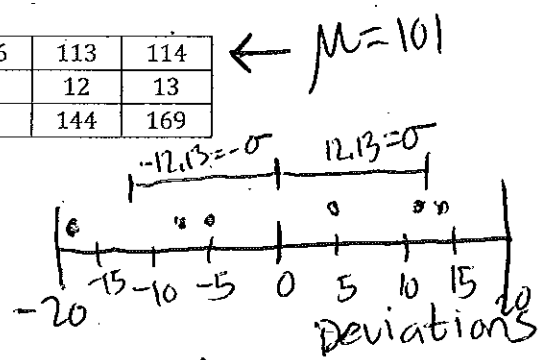 6 113 114 ← M=101
12 13
144 169
-12.13=-σ 12.13=σ
-20 -15 -10 -5 0 5 10 15 20
Deviations